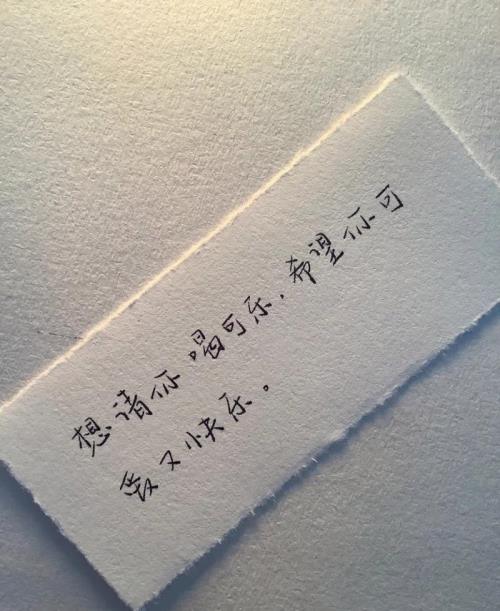 想请你喝可乐，希望你可
爱又快乐。